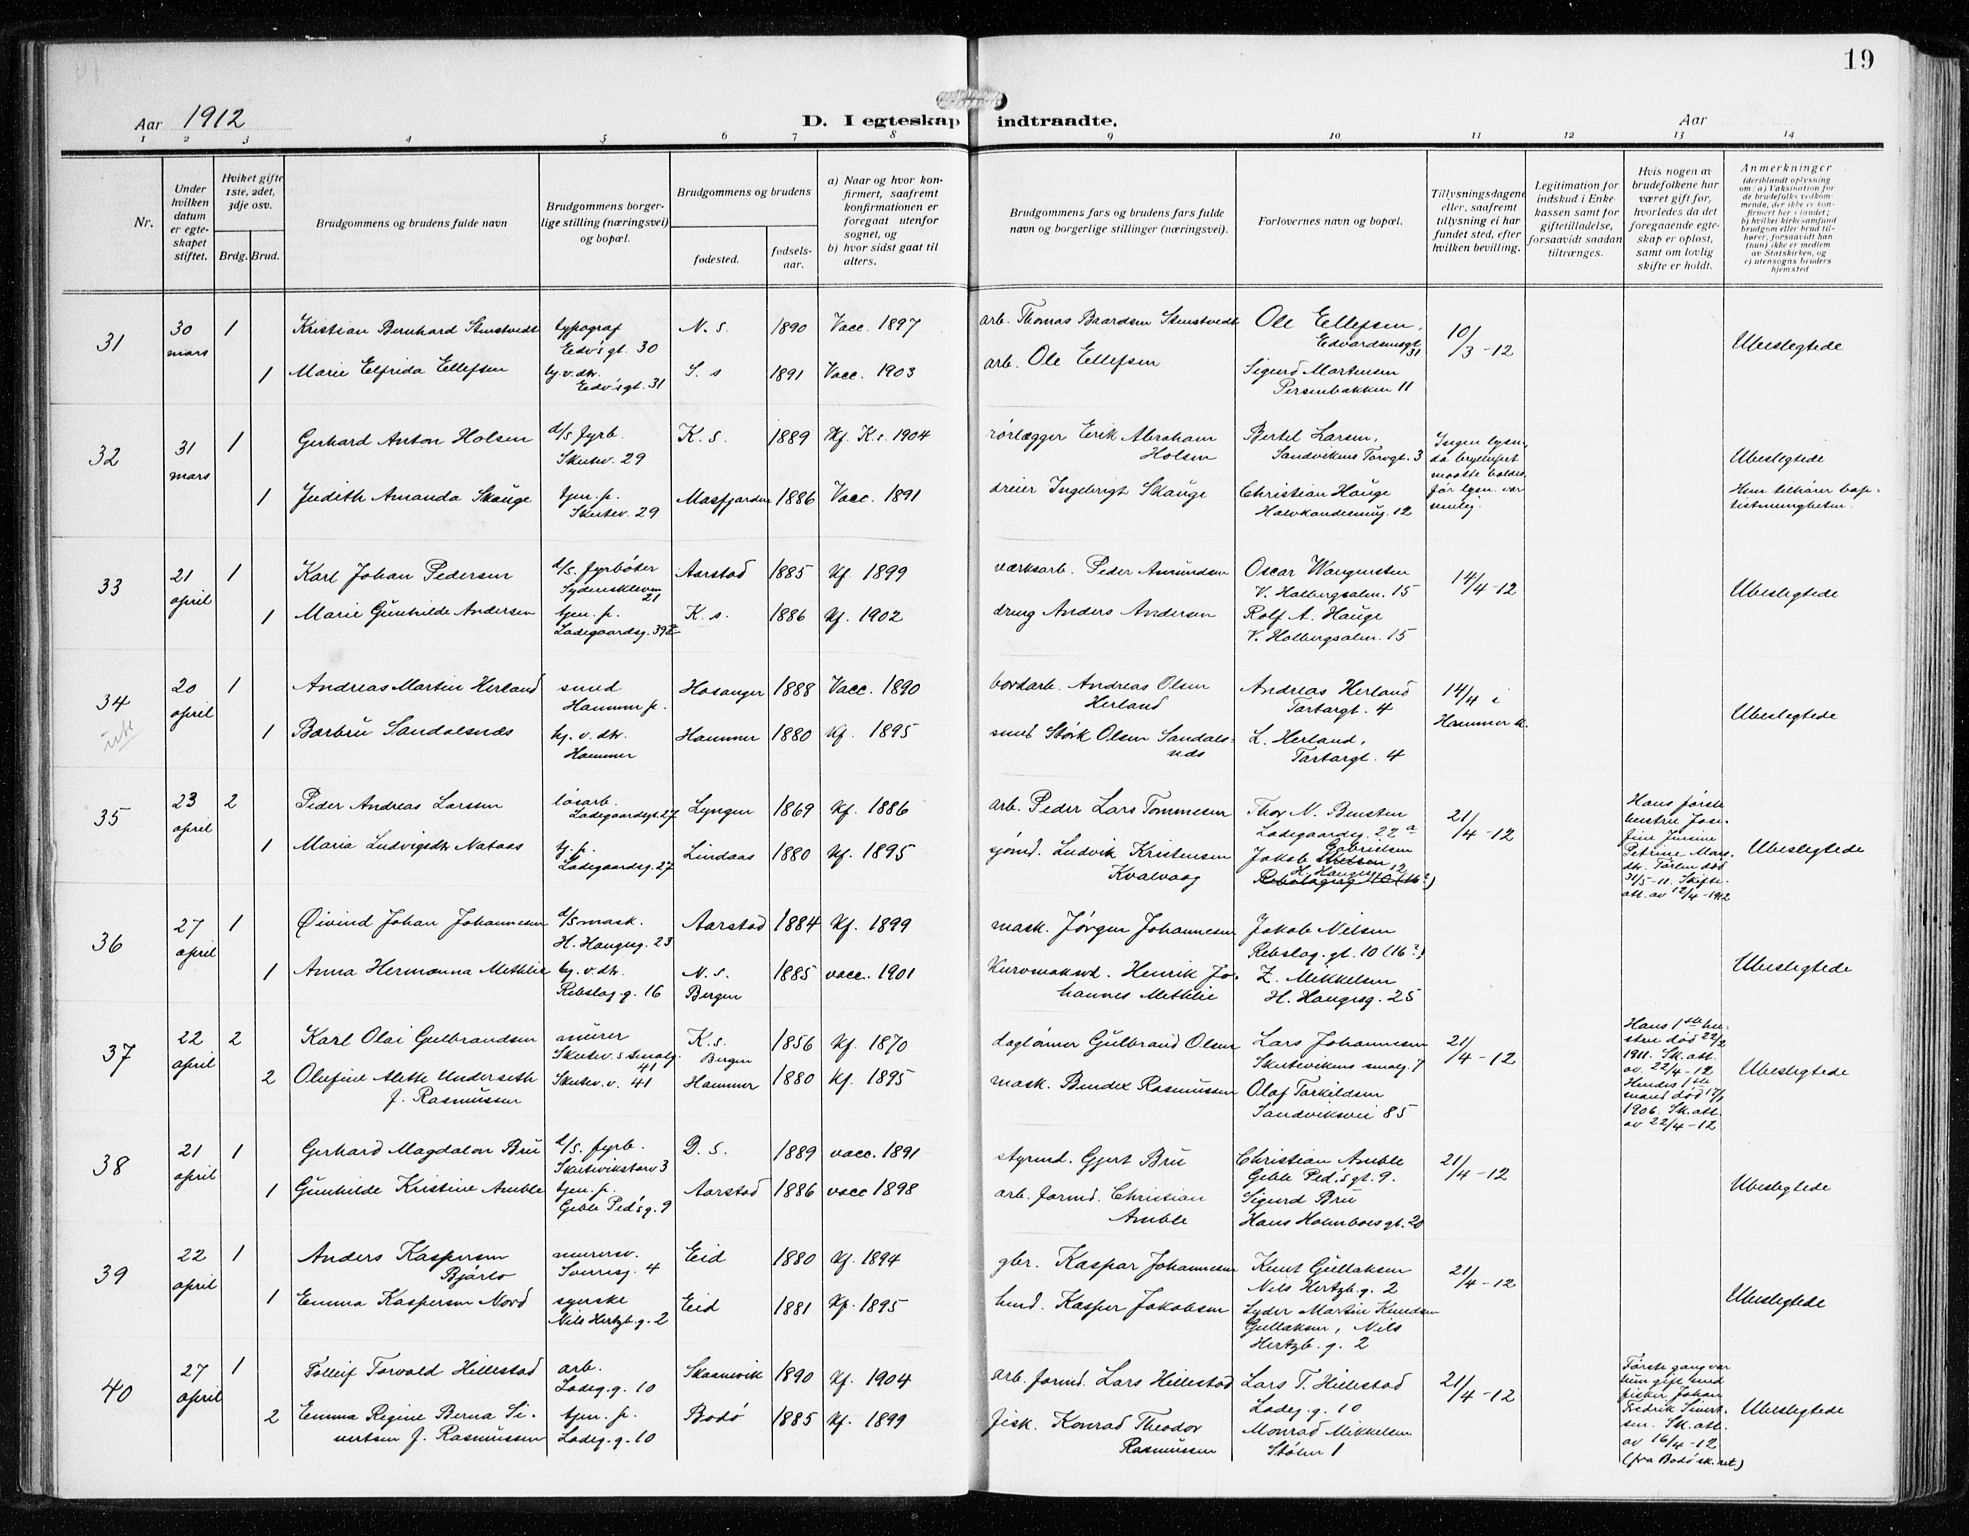 19
Aar 1912
D. I egteskap indtraadte.
Aar
1 2 3 4 5 6 7 8 9 10 11 12 13 14
Nr.
Under hvilken datum er egteskapet stiftet.
Hviket gifte 1ste, 2det, 3dje osv.
Brdg. Brud.
Brudgommens og brudens fulde navn
Brudgommens borgerlige stilling (næringsvei) og bopæl.
Brudgommens og brudens
fødested.
fødselsaar.
a) Naar og hvor konfirmert, saafremt konfirmationen er foregaat utenfor sognet, og
b) hvor sidst gaat til alters.
Brudgommens fars og brudens fars fulde navn og borgerlige stillinger (næringsvei).
Forlovernes navn og bopæl.
Tillysningsdagene eller, saafremt tillysning ei har fundet sted, efter hvilken bevilling.
Legitimation for indskud i Enkekassen samt for giftetilladelse, forsaavidt saadan tiltrænges.
Hvis nogen av brudefolkene har været gift før, hvorledes da det foregaaende egteskap er opløst, samt om lovlig skifte er holdt.
Anmerkninger
(deriblandt oplysning om: a) Vaksination for de brudefolks vedkommende, der ikke er konfirmert her i landet; b) hvilket kirkesamfund brudgom eller brud tilhører, forsaavidt han (hun) ikke er medlem av Statskirken, og c) utensogns bruders hjemsted
31 30 mars 1 Kristian Bernhard Stenstvedt typograf Edv's gt. 30 N. s. 1890 Vacc. 1897 arb. Thomas Baardsen Stenstvedt Ole Ellefsen, Edvardsensgt. 31 10/3-12 Ubeslegtede
1 Marie Elfrida Ellefsen hj. v. dtr. Edv's gt. 31 S. s 1891 Vacc. 1903 arb. Ole Ellefsen Sigurd Mortensen Persenbakken 11
32 31 mars 1 Gerhard Anton Holsen d/s fyrb. Skutev. 29 K. s. 1889 Kf. K.s. 1904 rørlægger Erik Abraham Holsen Bertil Larsen, Sandvikens Torvgt. 3 Ingen lysn. da bryllupet maatte holdes før lysn. var mulig. Ubeslegtede
1 Judith Amanda Skauge tjen. p. Skutev. 29 Masfjorden 1886 Vacc. 1891 dreier Ingebrigt Skauge Christian Hauge 12 Hun tilhører baptistmenigheten.
33 21 april 1 Karl Johan Pedersen d/s. fyrbøter 21 Aarstad 1885 Kf. 1899 værksarb. Peder Amundsen Oscar Wangensten V. Holbergsalm. 15 14/4-12 Ubeslegtede
1 Marie Gunhilde Andersen tjen. p. Ladegaardsg. 39 K. s. 1886 Kf. 1902 dreng Anders Andersen Rolf A. Hauge V. Holbergsalm. 15
34 20 april 1 Andreas Martin Herland smed Hammer p. Hosanger 1888 Vacc. 1890 bordarb. Andreas Olsen Herland Andreas Herland Tartargt. 4 14/4 i Hammer k. Ubeslegtede
1 Barbru Sandalsnæs hj. v. dtr. Hammer Hammer 1880 Kf. 1895 smed Størk Olsen Sandalsnæs L. Herland, Tartargt. 4
35 23 april 2 Peder Andreas Larsen løsarb. Ladegaardsgt. 27 Lyngen 1869 Kf. 1886 arb. Peder Lars Tommesen Thor N. Bensten Ladegaardsg. 22 a 21/4-12 Hans første hustru Josefine Petrine død 31/5-11. Skifteatt. av 12/4-1912 Ubeslegtede
1 Maria Ludvigsdtr. Nataas tj. p. Ladegaardsg. 27 Lindaas 1880 Kf. 1895 sjømd. Ludvik Kristensen Kvalvaag Jakob Gabrielsen H. Haugesg. 12
36 27 april 1 Øivind Johan Johannesen d/s mask. H. Haugesg. 23 Aarstad 1884 Kf. 1899 mask. Jørgen Johannesen Jakob Nilsen Rebslag.gt. 10 (16?) Ubeslegtede
1 Anna Hermanna Methlie hj. v. dtr. Rebslag.g. 16 N. s. Bergen 1885 vacc. 1901 Henrik Johannes Methlie Z. Mikkelsen H. Haugesg. 25
37 22 april 2 Karl Olai Gulbrandsen murer Skutev.s smalg. 41 K.s. Bergen 1856 Kf. 1870 dagløner Gulbrand Olsen Lars Johannesen Skutevikens smalg. 7 21/4-12 Hans 1ste hustru død 22/2 1911. Sk.att. av 22/4-12 Hendes 1ste mand død 17/1 1906. Sk.att. av 22/4-12 Ubeslegtede
2 Olufine Alette Underseth f. Rasmussen Skutev. v. 41 Hammer 1880 Kf. 1895 mask. Bendex Rasmussen Olaf Torkildsen Sandviksvei 85
38 21 april 1 Gerhard Magdalon Bru d/s. fyrb. Skutevikstorv 3 D. s. 1889 vacc. 1891 styrmd. Gjert Bru Christian Amble Geble Ped.s gt. 9. 21/4-12 Ubeslegtede
1 Gunhilde Kristine Amble tjen. p. Geble Ped's g. 9 Aarstad 1886 vacc 1898 arb. formd. Christian Amble Sigurd Bru Hans Holmboes gt. 20
39 22 april 1 Anders Kaspersen Bjørlo murersv. Sverresg. 4 Eid 1880 Kf. 1894 gbr. Kaspar Johannesen Knut Gullaksen Nils Hertzb.g. 2 21/4-12 Ubeslegtede
1 Emma Kaspersen Nord syerske Nils Hertzb.g. 2 Eid 1881 Kf. 1895 husmd. Kasper Jakobsen Syder Martin Knudsen Gullaksen, Nils Hertzb. g. 2
40 27 april 1 Tolleif Torvald Hillestad arb. Ladeg.g. 10 Skaanevik 1890 Kf. 1904 arb. formd. Lars Hillestad Lars T. Hillestad Ladeg.g. 10 21/4-12 Første gang var hun gift med fisker Johan Fredrik Sivertsen. Sk.att. av 16/4-12 (fra Bodø sk.ret) Ubeslegtede
2 Emma Regine Berna Sivertsen f. Rasmussen tjen. p. Ladeg.g. 10 Bodø 1885 Kf. 1899 fisk. Konrad Theodor Rasmussen Monrad Mikkelsen Stølen 1